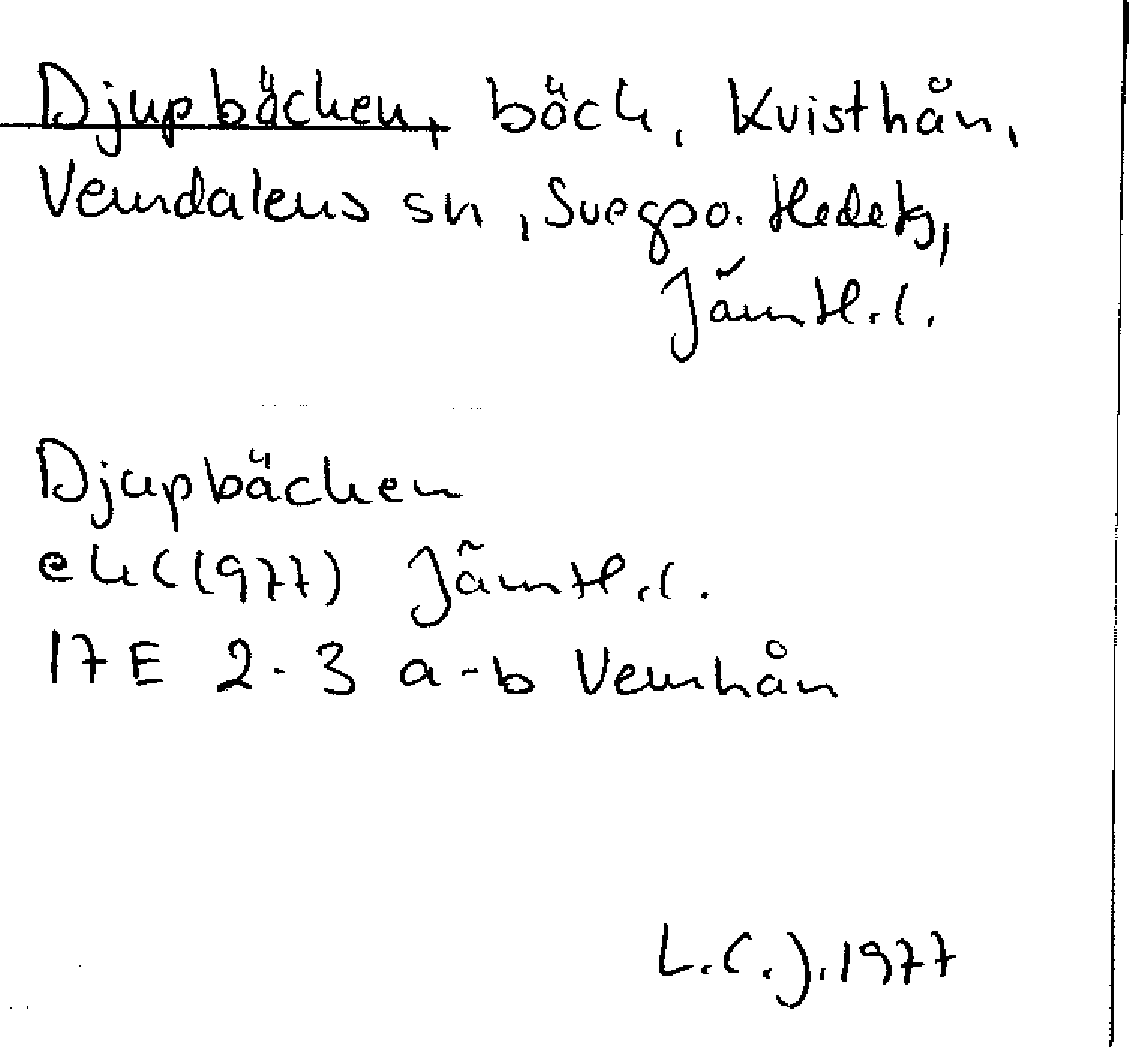 Djupbäcken, bäck, Kvisthån,
Vemdalens sn, Svegs po. Hedetg,
Jämtl.l.
Djupbäcken
ek (1977) Jämtl.l.
17E 2-3 a-b Vemhån
L.C.J. 1977